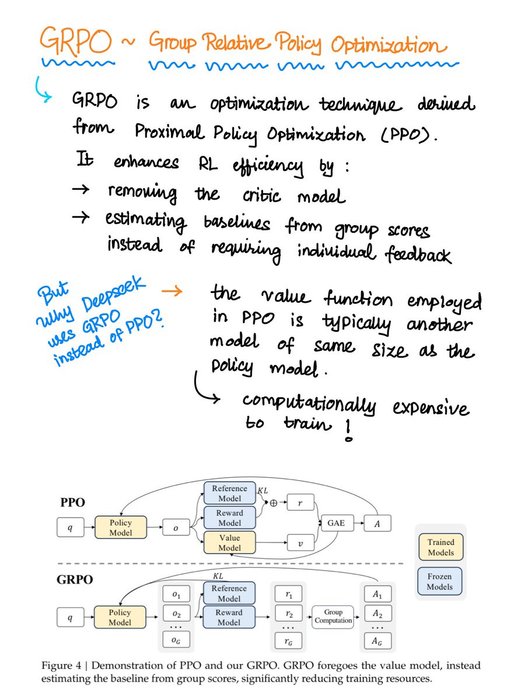 GRPO ~ Group Relative Policy Optimization
GRPO is an optimization technique derived
from Proximal Policy Optimization (PPO).
It enhances RL efficiency by :
→ removing the critic model
→ estimating baselines from group scores
instead of requiring individual feedback
But
why Deepseek
uses GRPO
instead of PPO?
→ the value function employed
in PPO is typically another
model of same size as the
policy model.
computationally expensive
to train !
PPO
q
Policy
Model
o
Reference
Model
Reward
Model
Value
Model
KL
⊕
r
v
GAE
A
Trained
Models
Frozen
Models
GRPO
q
Policy
Model
KL
o1
o2
...
oG
Reference
Model
Reward
Model
r1
r2
...
rG
Group
Computation
A1
A2
...
AG
Figure 4 | Demonstration of PPO and our GRPO. GRPO foregoes the value model, instead
estimating the baseline from group scores, significantly reducing training resources.